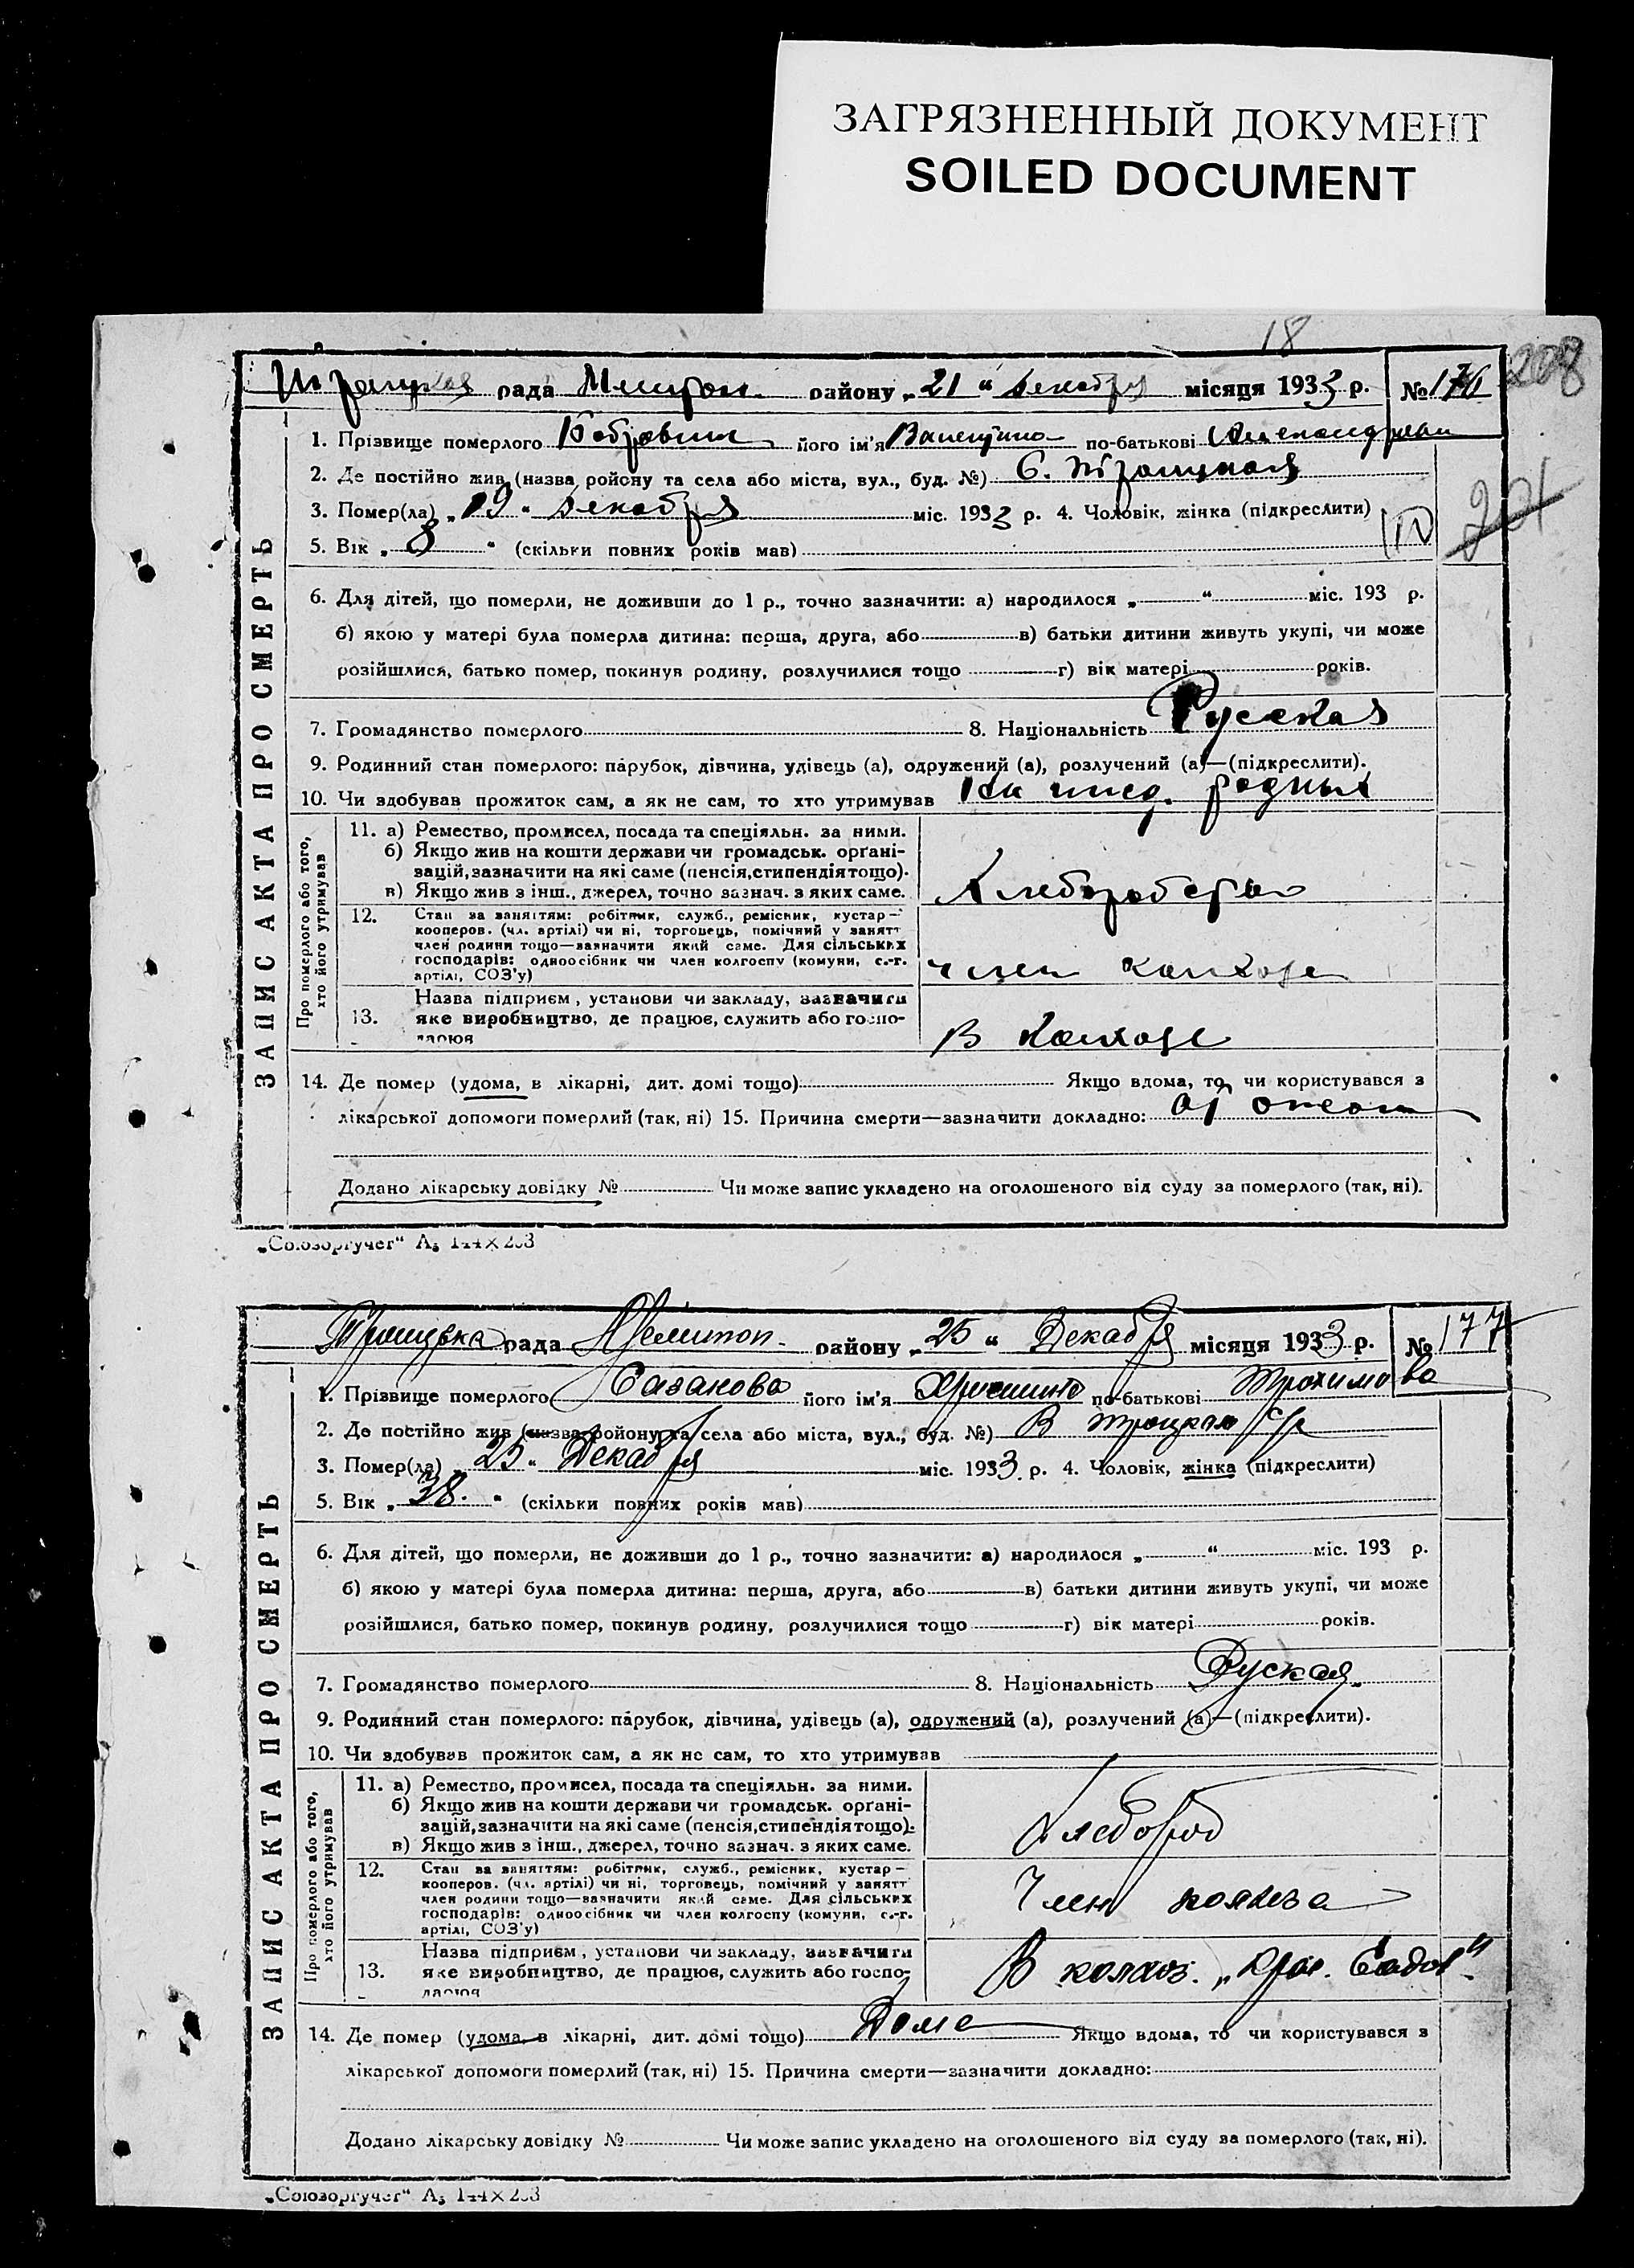 ЗАГРЯЗНЕННЫЙ ДОКУМЕНТ
SOILED DOCUMENT
18
208
рада Мелитоп. району „21“ декабря місяця 1933 р. № 176
ЗАПИС АКТА ПРО СМЕРТЬ
1. Прізвище померлого його ім'я Валентина по-батькові
2. Де постійно жив (назва ройону та села або міста, вул., буд. №) С. Троицкое
201
3. Помер(ла) „19“ декабря міс. 1933 р. 4. Чоловік, жінка (підкреслити)
5. Вік „8“ (скільки повних років мав)
6. Для дітей, що померли, не доживши до 1 р., точно зазначити: а) народилося „ “ міс. 193 р.
б) якою у матері була померла дитина: перша, друга, або в) батьки дитини живуть укупі, чи може
розійшлися, батько помер, покинув родину, розлучилися тощо г) вік матері років.
7. Громадянство померлого 8. Національність Русская
9. Родинний стан померлого: парубок, дівчина, удівець (а), одружений (а), розлучений (а)—(підкреслити).
10. Чи здобував прожиток сам, а як не сам, то хто утримував На ижд. родных
Про померлого або того, хто його утримував
11. а) Ремество, промисел, посада та спеціяльн. за ними.
б) Якщо жив на кошти держави чи громадськ. орґані-
зацій, зазначити на які саме (пенсія, стипендія тощо).
в) Якщо жив з інш., джерел, точно зазнач. з яких саме.
Хлеборобство
12. Стан за заняттям: робітник, служб., ремісник, кустар—
кооперов. (чл. артілі) чи ні, торговець, помічний у занятт
член родини тощо—зазначити який саме. Для сільських
господарів: одноосібник чи член колгоспу (комуни, с.-г.
артілі, СОЗ'у)
член колхоза
13. Назва підприєм., установи чи закладу, зазначити
яке виробництво, де працює, служить або госпо-
дарює
В колхозе
14. Де помер (удома, в лікарні, дит. домі тощо) Якщо вдома, то, чи користувався з
лікарської допомоги померлий (так, ні) 15. Причина смерти—зазначити докладно: от
Додано лікарську довідку № Чи може запис укладено на оголошеного від суду за померлого (так, ні).
„Союзоргучет“ А₅ 144×203
Троицька рада Мелитоп. району „25“ Декабря місяця 1933 р. № 177
ЗАПИС АКТА ПРО СМЕРТЬ
1. Прізвище померлого Сазанова його ім'я по-батькові Трохимова
2. Де постійно жив (назва ройону та села або міста, вул., буд. №) В Троцком с/р
3. Помер(ла) „25“ Декабря міс. 1933 р. 4. Чоловік, жінка (підкреслити)
5. Вік „38.“ (скільки повних років мав)
6. Для дітей, що померли, не доживши до 1 р., точно зазначити: а) народилося „ “ міс. 193 р.
б) якою у матері була померла дитина: перша, друга, або в) батьки дитини живуть укупі, чи може
розійшлися, батько помер, покинув родину, розлучилися тощо г) вік матері років.
7. Громадянство померлого 8. Національність Руская
9. Родинний стан померлого: парубок, дівчина, удівець (а), одружений (а), розлучений (а)—(підкреслити).
10. Чи здобував прожиток сам, а як не сам, то хто утримував
Про померлого або того, хто його утримував
11. а) Ремество, промисел, посада та спеціяльн. за ними.
б) Якщо жив на кошти держави чи громадськ. орґані-
зацій, зазначити на які саме (пенсія, стипендія тощо).
в) Якщо жив з інш., джерел, точно зазнач. з яких саме.
Хлебороб
12. Стан за заняттям: робітник, служб., ремісник, кустар—
кооперов. (чл. артілі) чи ні, торговець, помічний у занятт
член родини тощо—зазначити який саме. Для сільських
господарів: одноосібник чи член колгоспу (комуни, с.-г.
артілі, СОЗ'у)
Член колхоза
13. Назва підприєм., установи чи закладу, зазначити
яке виробництво, де працює, служить або госпо-
дарює
В колхоз. „Крас. Садов“
14. Де помер (удома, в лікарні, дит. домі тощо) Дома Якщо вдома, то чи користувався з
лікарської допомоги померлий (так, ні) 15. Причина смерти—зазначити докладно:
Додано лікарську довідку № Чи може запис укладено на оголошеного від суду за померлого (так, ні).
„Союзоргучет“ А₅ 144×203